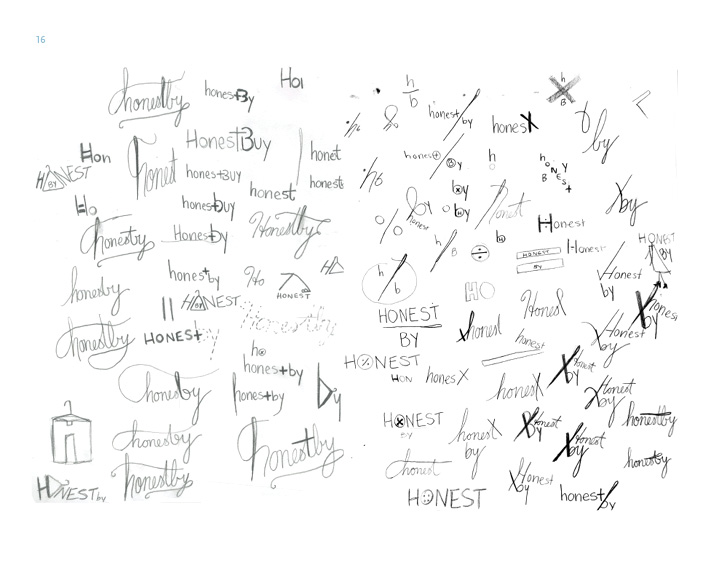 16
honestby
hones+By
Hol
HonestBuy
Hon
HBYNEST
Honest
hones+BUY
honet
honest
honest
Ho
hones+Buy
Honestby
Honestby
Hones+by
honestby
Ho
HONEST
HONEST
honesby
HONES+
Honestby
honestby
ho
hones+by
honesby
hones+by
by
honesby
Honestby
HONEST by
honestby
h
b
h
B
honest/by
honesX
by
h6
h
hones+
by
h
HONEST
BY
h6
by
by
honest
Honest
Xby
Honest
b
h
B
HONEST
BY
Honest
HONEST
BY
h
b
HO
Honest
by
HONEST
BY
Xhonest
Honest
honest
Xhonest
by
Honest
by
HONEST
HON
honesX
honesX
XHonest
by
XHonest
by
HONEST
BY
honesX
by
XHonest
by
XHonest
by
honestby
honest
honestby
HONEST
XHonest
by
honest/by